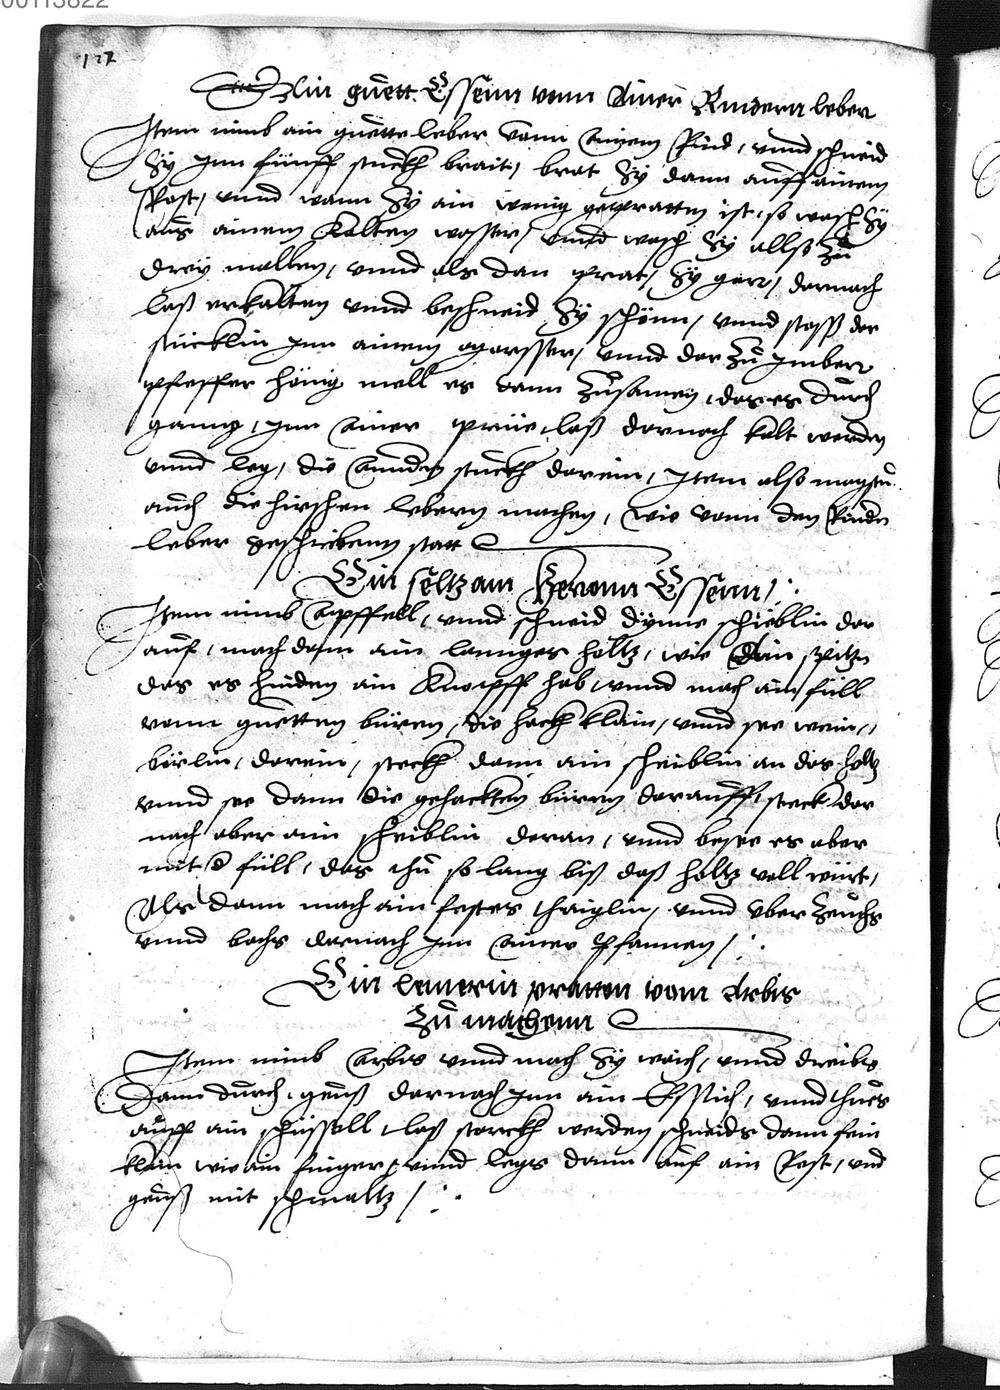 00113822
127
Ain guett Essenn vonn Ainer Rindern leber
Item nimb ain guette leber vonn Ainem Rind, vnnd schneid
Sy Inn fünff stuckh brait, brat Sy dann auff ainem
Rost, vnnd wann Sy ain wenig gepratten ist, so wasch Sy
aus ainem Kalten wasser, vnnd wasch Sy allso zu
drey mallen, vnnd als dan prat, Sy garr, darnach
laß erkalten vnnd beschneid Sy schönn, vnnd stoss der
stücklin Inn ainem, vnnd dar zu Imberr
pfeffer hönig mell es dann zusamen, das es durch
gang, Inn Ainer prüe, laß darnach kalt werden
vnnd leg, die Annder stuckh darein, Item also magstu
auch die hirschen lebern machen, wie vonn den Rinder
leber geschribenn statt
Ein seltzam Essenn /:
Item nimb Aepffell, vnnd schneid dynne schieblin dar
auß, mach dann ain lannges holtz, wie Ain spitz
das es hinden ain Knopff hab, vnnd mach ain füll
vonn guetten büren, die hackh klain, vnnd see wein,,
börlin, darein, steckh dann ain scheiblin an das holtz
vnnd see dann die gehackten büren darauff, steck dar
nach aber ain scheiblin daran, vnnd besee es aber
mit d füll, das thu so lang biß daß holtz voll würt,
Als dann mach ain festes thaiglin, vnnd vber zeuchs
vnnd bachs darnach Inn Ainer Pfannen /:
Ein pratten vom Arbis
Zu machenn
Item nimb Arbis vnnd mach Sy waich, vnnd dreibs
Dann durch, geuß darnach Inn ain Essich, vnnd thues
auff ain schüssell, laß starckh werden schneids dann fein
klain wie ain finger, vnnd legs dann auf ain Rost, vnd
geuß mit schmaltz /: